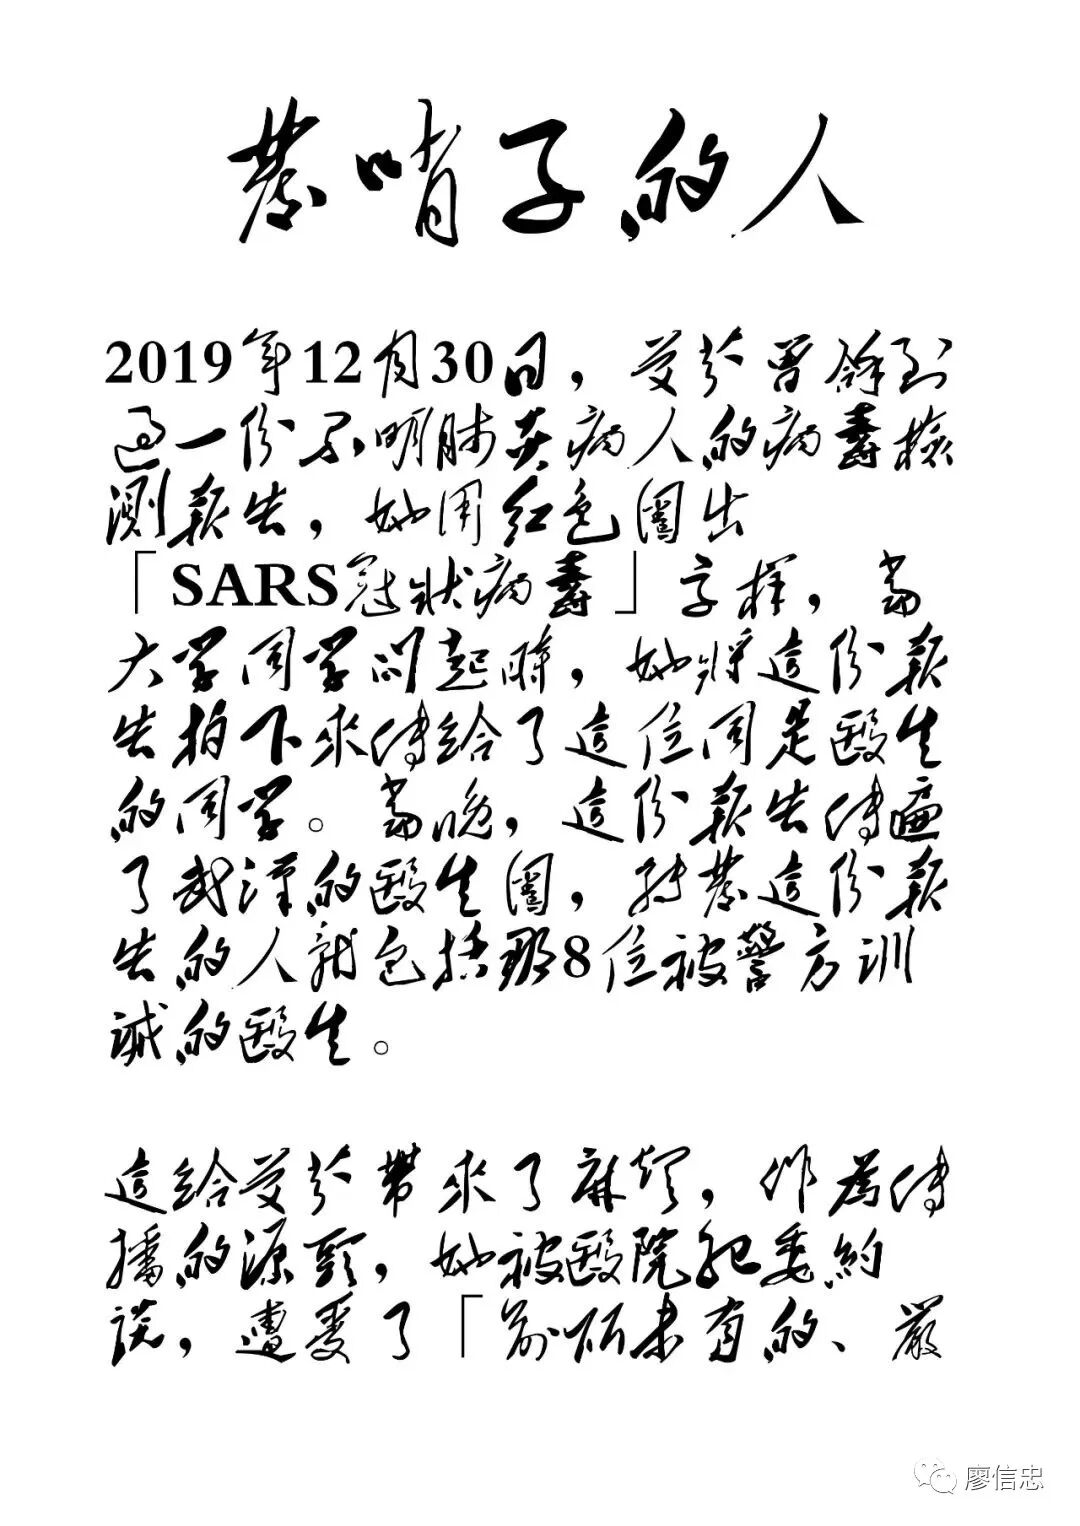 發哨子的人
2019年12月30日，艾芬曾拿到
過一份不明肺炎病人的病毒檢
測報告，她用紅色圈出
「SARS冠狀病毒」字樣，當
大學同學問起時，她將這份報
告拍下來傳給了這位同是醫生
的同學。當晚，這份報告傳遍
了武漢的醫生圈，轉發這份報
告的人就包括那8位被警方訓
誡的醫生。
這給艾芬帶來了麻煩，作為傳
播的源頭，她被醫院紀委約
談，遭受了「前所未有的、嚴
廖信忠